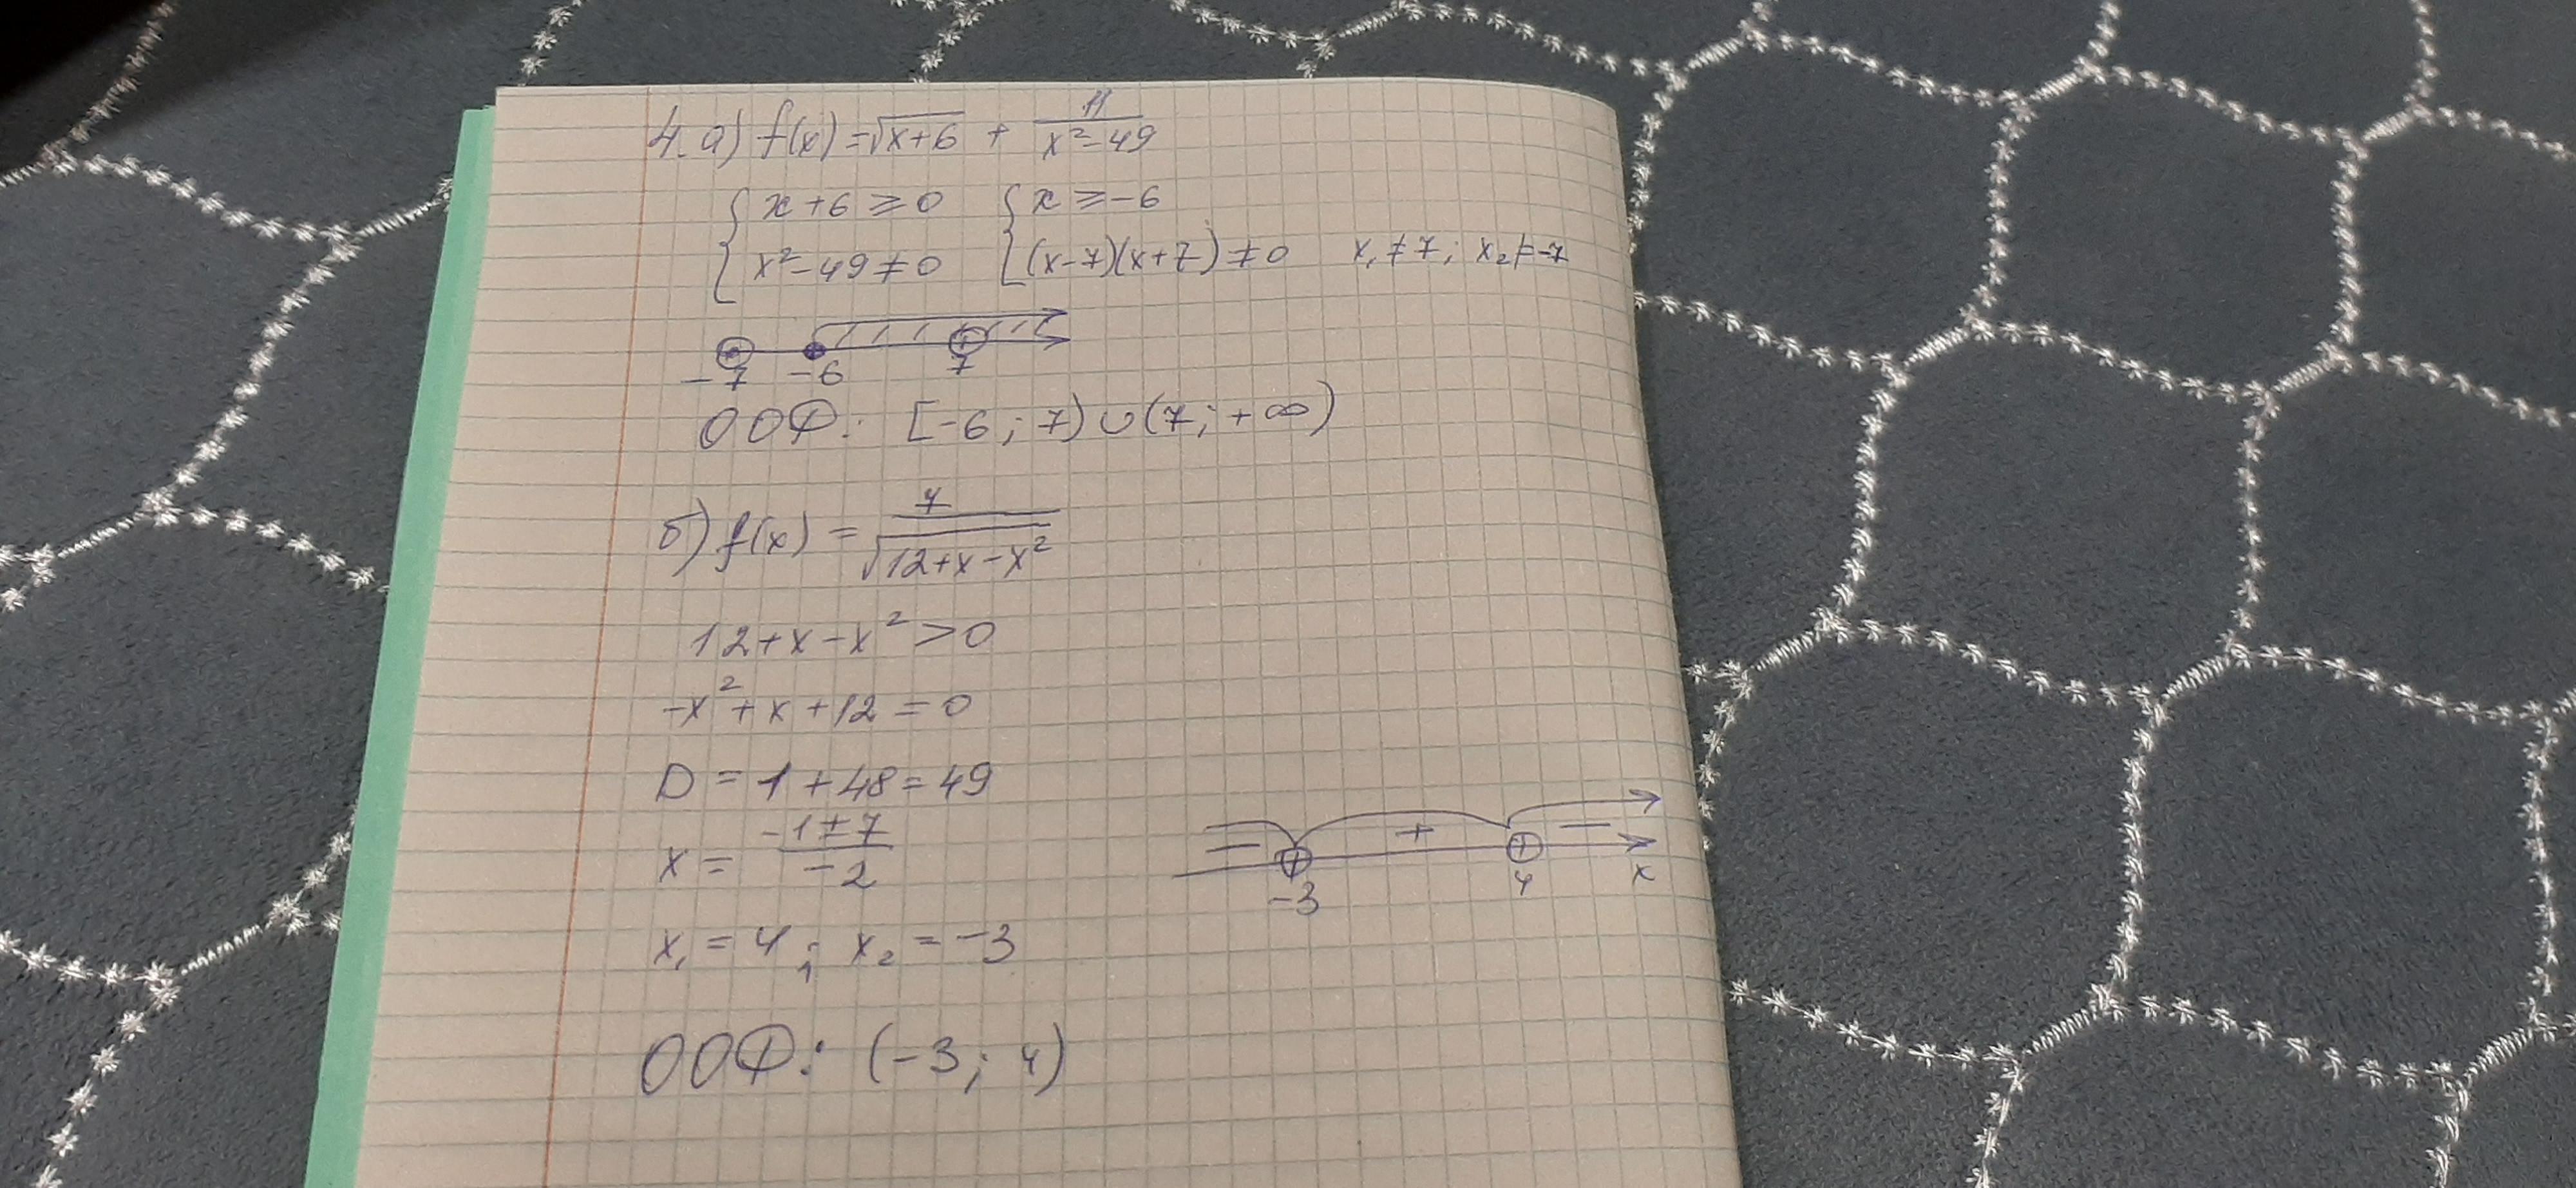 4. а) f(x) = √(x+6) + 11/(x²-49)
{ x+6 ≥ 0 { x ≥ -6
{ x²-49 ≠ 0 { (x-7)(x+7) ≠ 0 x₁ ≠ 7; x₂ ≠ -7
-7 -6 7
ООФ: [-6; 7) ∪ (7; +∞)
б) f(x) = 7/√(12+x-x²)
12+x-x² > 0
-x²+x+12 = 0
D = 1+48 = 49
x = (-1±7)/(-2)
- + -
-3 4 x
x₁ = 4; x₂ = -3
ООФ: (-3; 4)